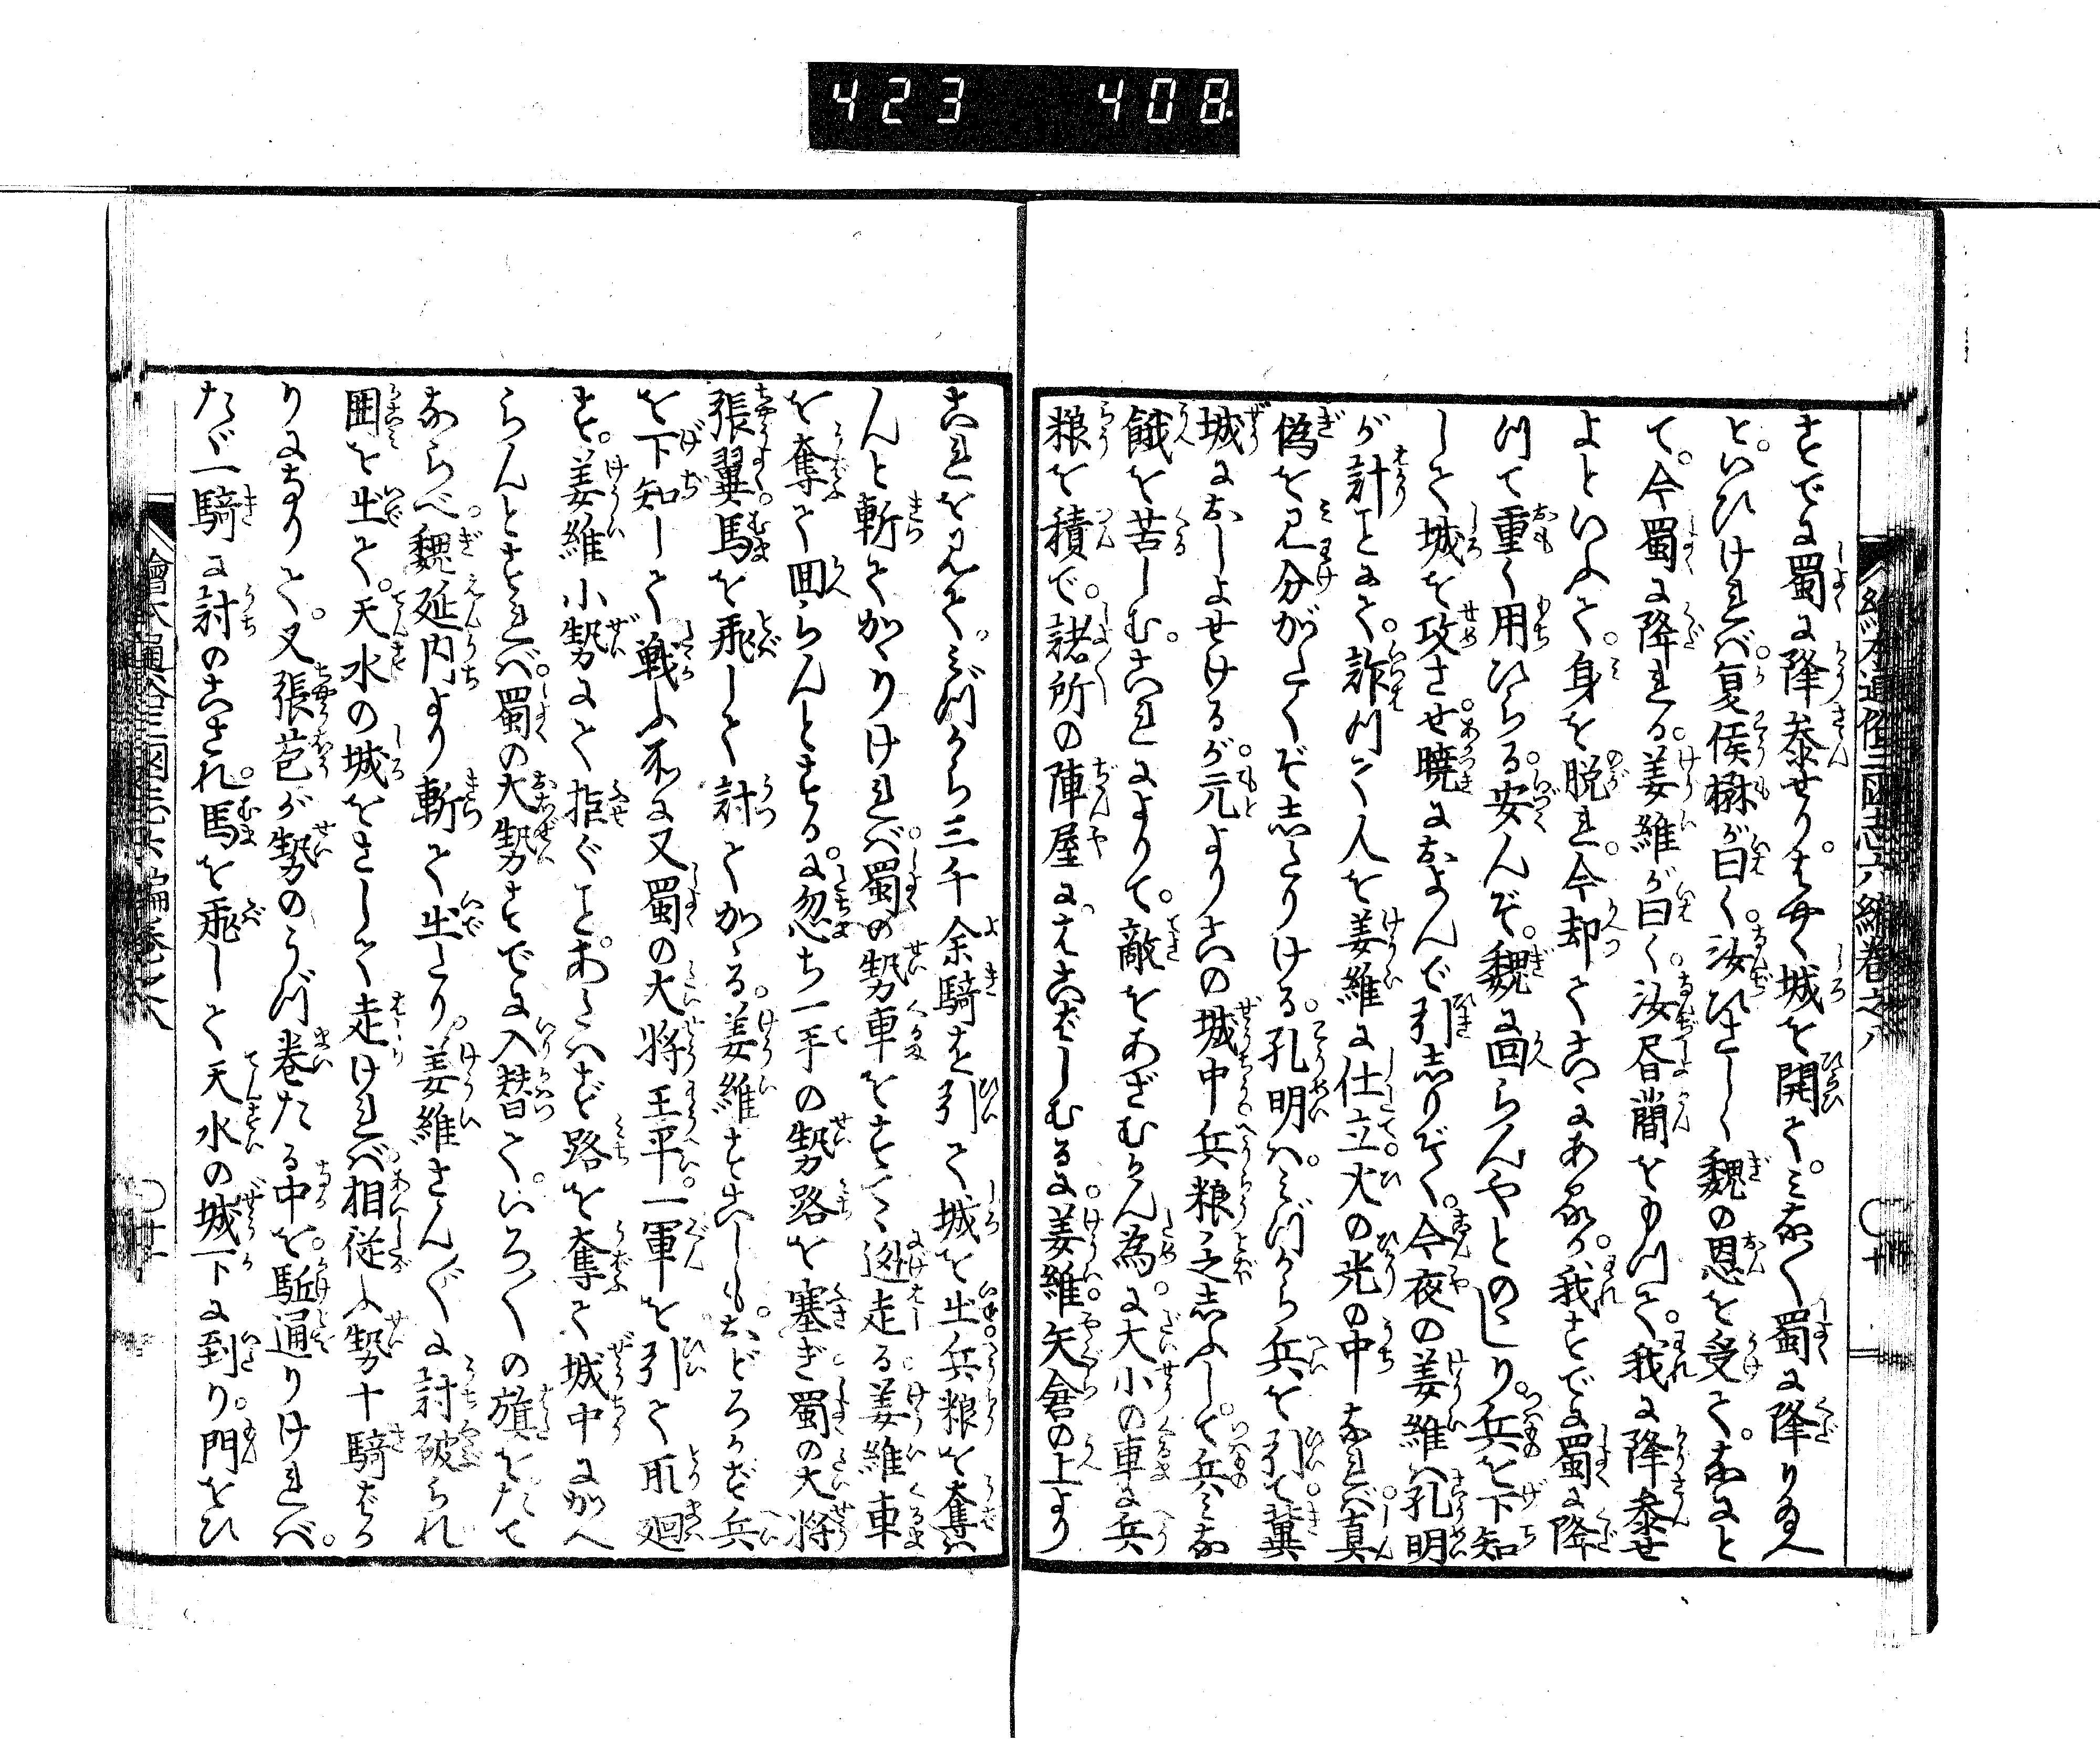 423 408
繪本通俗三國志六編巻之八 ○十
すでに蜀に降参せり。はやく城を開て。みな〳〵蜀に降り給へ
と。いひければ。夏侯楙が曰く。汝ひさしく魏の恩を受て。なにと
て。今蜀に降れる。姜維が曰く。汝昏蕳をもつて。我に降参せ
よといふて。身を脱れ。今却てこゝにあるか。我すでに蜀に降
つて重く用ひらる。安んぞ。魏に回らんやとのゝしり。兵を下知
して城を攻させ。暁におよんで引しりぞく。今夜の姜維は孔明
が計ことにて。詐つて人を姜維に仕立火の光の中なれば。真
偽を見分がたくぞしたりける。孔明は。みづから兵を引て。冀
城におしよせけるが。元よりこの城中。兵粮乏しふして。兵みな
餓を苦しむ。これによりて。敵をあざむかん為に。大小の車に兵
粮を積で。諸所の陣屋に。はこばしむるに。姜維。矢倉の上より
これを見て。みづから三千余騎を引て城を出。兵粮を奪は
んと斬てかゝりければ。蜀の勢車をすてゝ逃走る。姜維車
を奪て回らんとするに。忽ち一手の勢路を塞ぎ。蜀の大将
張翼。馬を飛して討てかゝる。姜維すこしも。おどろかず兵
を下知して戦ふ所に又蜀の大将王平。一軍を引て取廻
す。姜維小勢にて拒ぐこと。あたはず路を奪て城中にかへ
らんとすれば。蜀の大勢すでに入替て。いろ〳〵の旗をたて
ならべ。魏延内より斬て出たり。姜維さん〴〵に討破られ
囲を出て。天水の城をさして走ければ。相従ふ勢十騎ばか
りになりて。又張苞が勢のうづ巻たる中を。駈通りければ。
たゞ一騎に討のこされ。馬を飛して天水の城下に到り。門をひ
繪本通俗三國志六編巻之八 ○廿